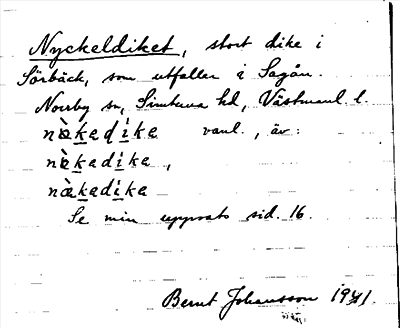 Nyckeldiket, stort dike i
Sörbäck, som utfaller i Sagån.
Norrby sn, Simtuna hd, Västmanl. l.
næ̀kadike vanl., äv:
nὲkadike,
nækadike
Se min uppsats sid. 16.
Bernt Johansson 1941.